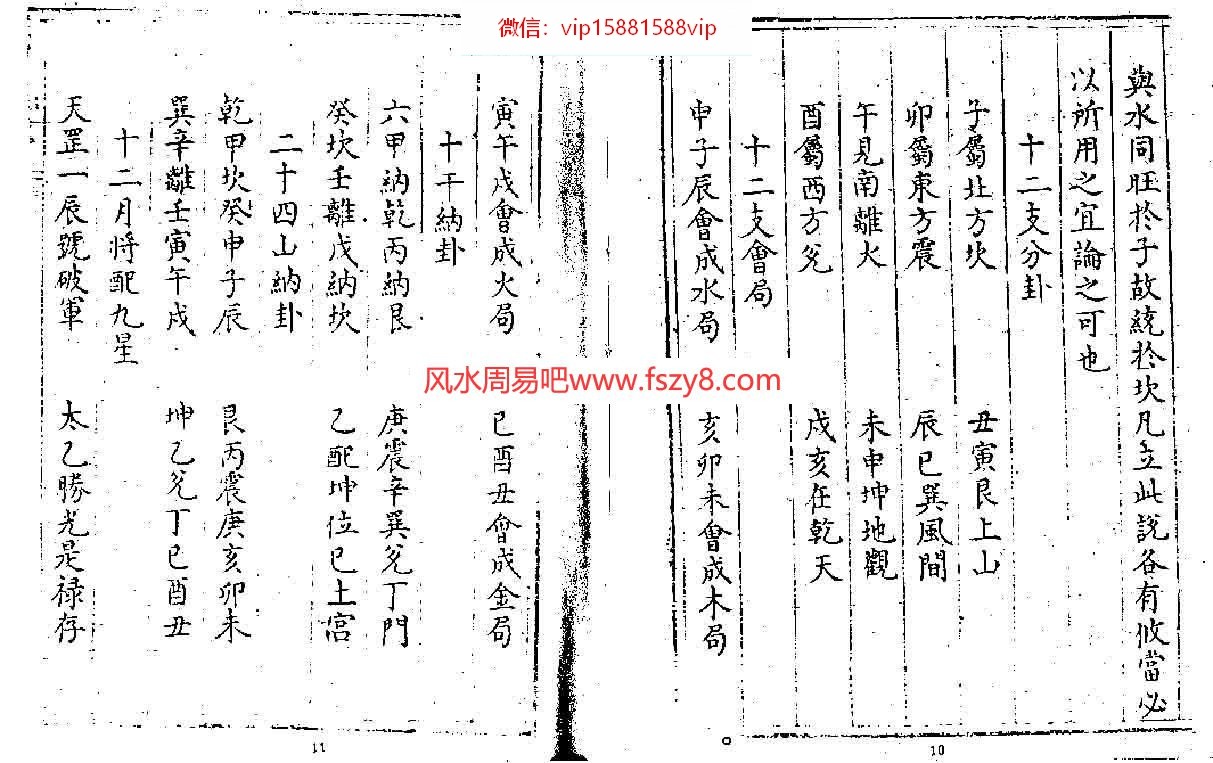 微信：vip15881588vip
與水同旺於子故統於坎凡立此說各有攸當必
以所用之宜論之可也
十二支分卦
子屬北方坎 丑寅艮上山
卯屬東方震 辰巳巽風間
午見南離火 未申坤地觀
酉屬西方兌 戌亥在乾天
十二支會局
申子辰會成水局 亥卯未會成木局
寅午戌會成火局 巳酉丑會成金局
十干納卦
六甲納乾丙納艮 庚震辛巽兌丁門
癸坎壬離戊納坎 乙配坤位已土宮
二十四山納卦
乾甲坎癸申子辰 艮丙震庚亥卯未
巽辛離壬寅午戌 坤乙兌丁巳酉丑
十二月將配九星
天罡一辰號破軍 太乙勝光是祿存
风水周易吧www.fszy8.com
10
11